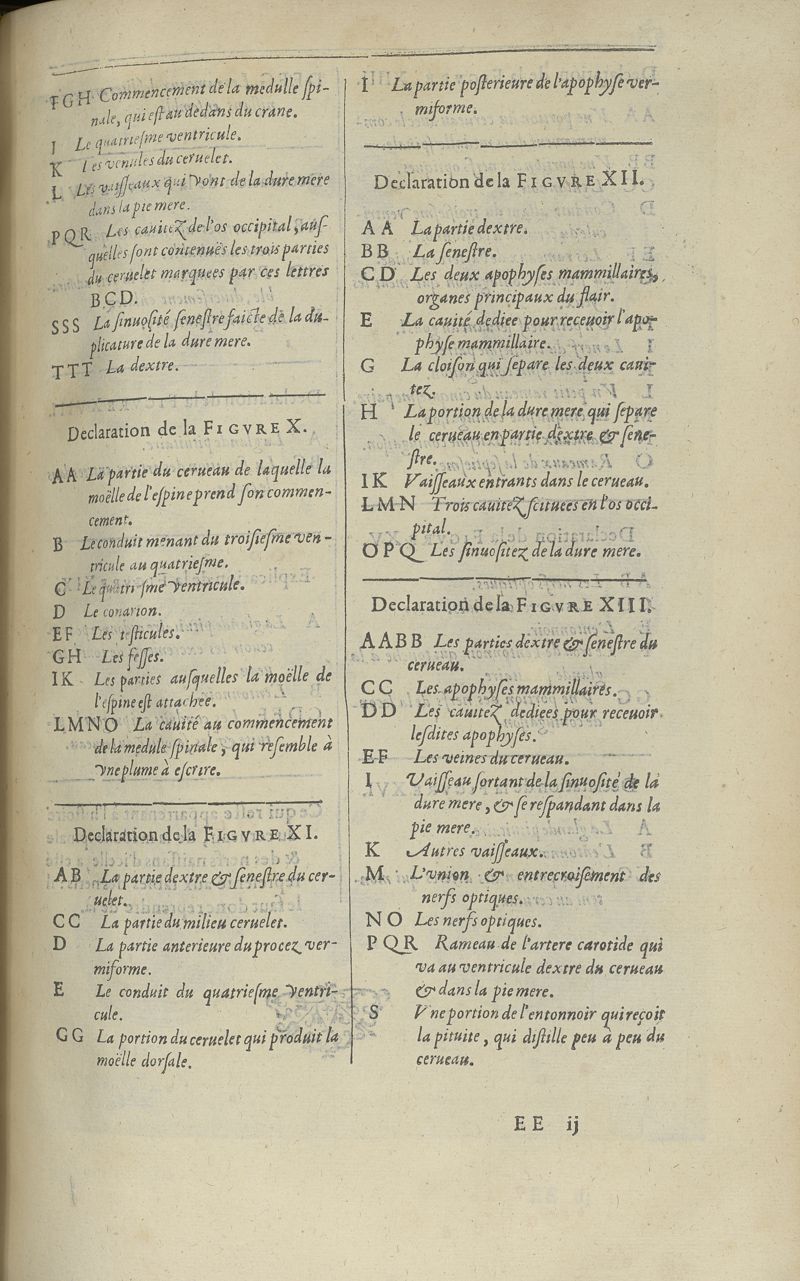 F G H Commencement de la medulle ſpi-
nale, qui eſt au dedans du crane.
I Le quatrieſme ventricule.
K Les venules du ceruelet.
L Les vaiſſeaux qui vont de la dure mere
dans la pie mere.
P Q R Les cauitez de l'os occipital, auſ-
quelles ſont contenuës les trois parties
du ceruelet marquees par ces lettres
B C D.
S S S La ſinuoſité ſeneſtre faicte de la du-
plicature de la dure mere.
T T T La dextre.
Declaration de la FIGVRE X.
A A La partie du cerueau de laquelle la
moëlle de l'eſpine prend ſon commen-
cement.
B Le conduit menant du troiſieſme ven-
tricule au quatrieſme.
C Le quatrieſme ventricule.
D Le conarion.
E F Les teſticules.
G H Les feſſes.
I K Les parties auſquelles la moëlle de
l'eſpine eſt attachee.
L M N O La cauité au commencement
de la medule ſpinale, qui reſemble à
vne plume à eſcrire.
Declaration de la FIGVRE XI.
A B La partie dextre & ſeneſtre du cer-
uelet.
C C La partie du milieu ceruelet.
D La partie anterieure du procez ver-
miforme.
E Le conduit du quatrieſme ventri-
cule.
G G La portion du ceruelet qui produit la
moëlle dorſale.
I La partie poſterieure de l'apophyſe ver-
miforme.
Declaration de la FIGVRE XII.
A A La partie dextre.
B B La ſeneſtre.
C D Les deux apophyſes mammillaires,
organes principaux du flair.
E La cauité dediee pour receuoir l'apo-
phyſe mammillaire.
G La cloiſon qui ſepare les deux caui-
tez.
H La portion de la dure mere qui ſepare
le cerueau en partie dextre & ſene-
ſtre.
I K Vaiſſeaux entrants dans le cerueau.
L M N Trois cauitez ſcituees en l'os occi-
pital.
O P Q Les ſinuoſitez de la dure mere.
Declaration de la FIGVRE XIII.
A A B B Les parties dextre & ſeneſtre du
cerueau.
C C Les apophyſes mammillaires.
D D Les cauitez dediees pour receuoir
leſdites apophyſes.
E F Les veines du cerueau.
I Vaiſſeau ſortant de la ſinuoſité de la
dure mere, & ſe reſpandant dans la
pie mere.
K Autres vaiſſeaux.
M L'vnion & entrecroiſement des
nerfs optiques.
N O Les nerfs optiques.
P Q R Rameau de l'artere carotide qui
va au ventricule dextre du cerueau
& dans la pie mere.
S Vne portion de l'entonnoir qui reçoit
la pituite, qui diſtille peu à peu du
cerueau.
E E ij